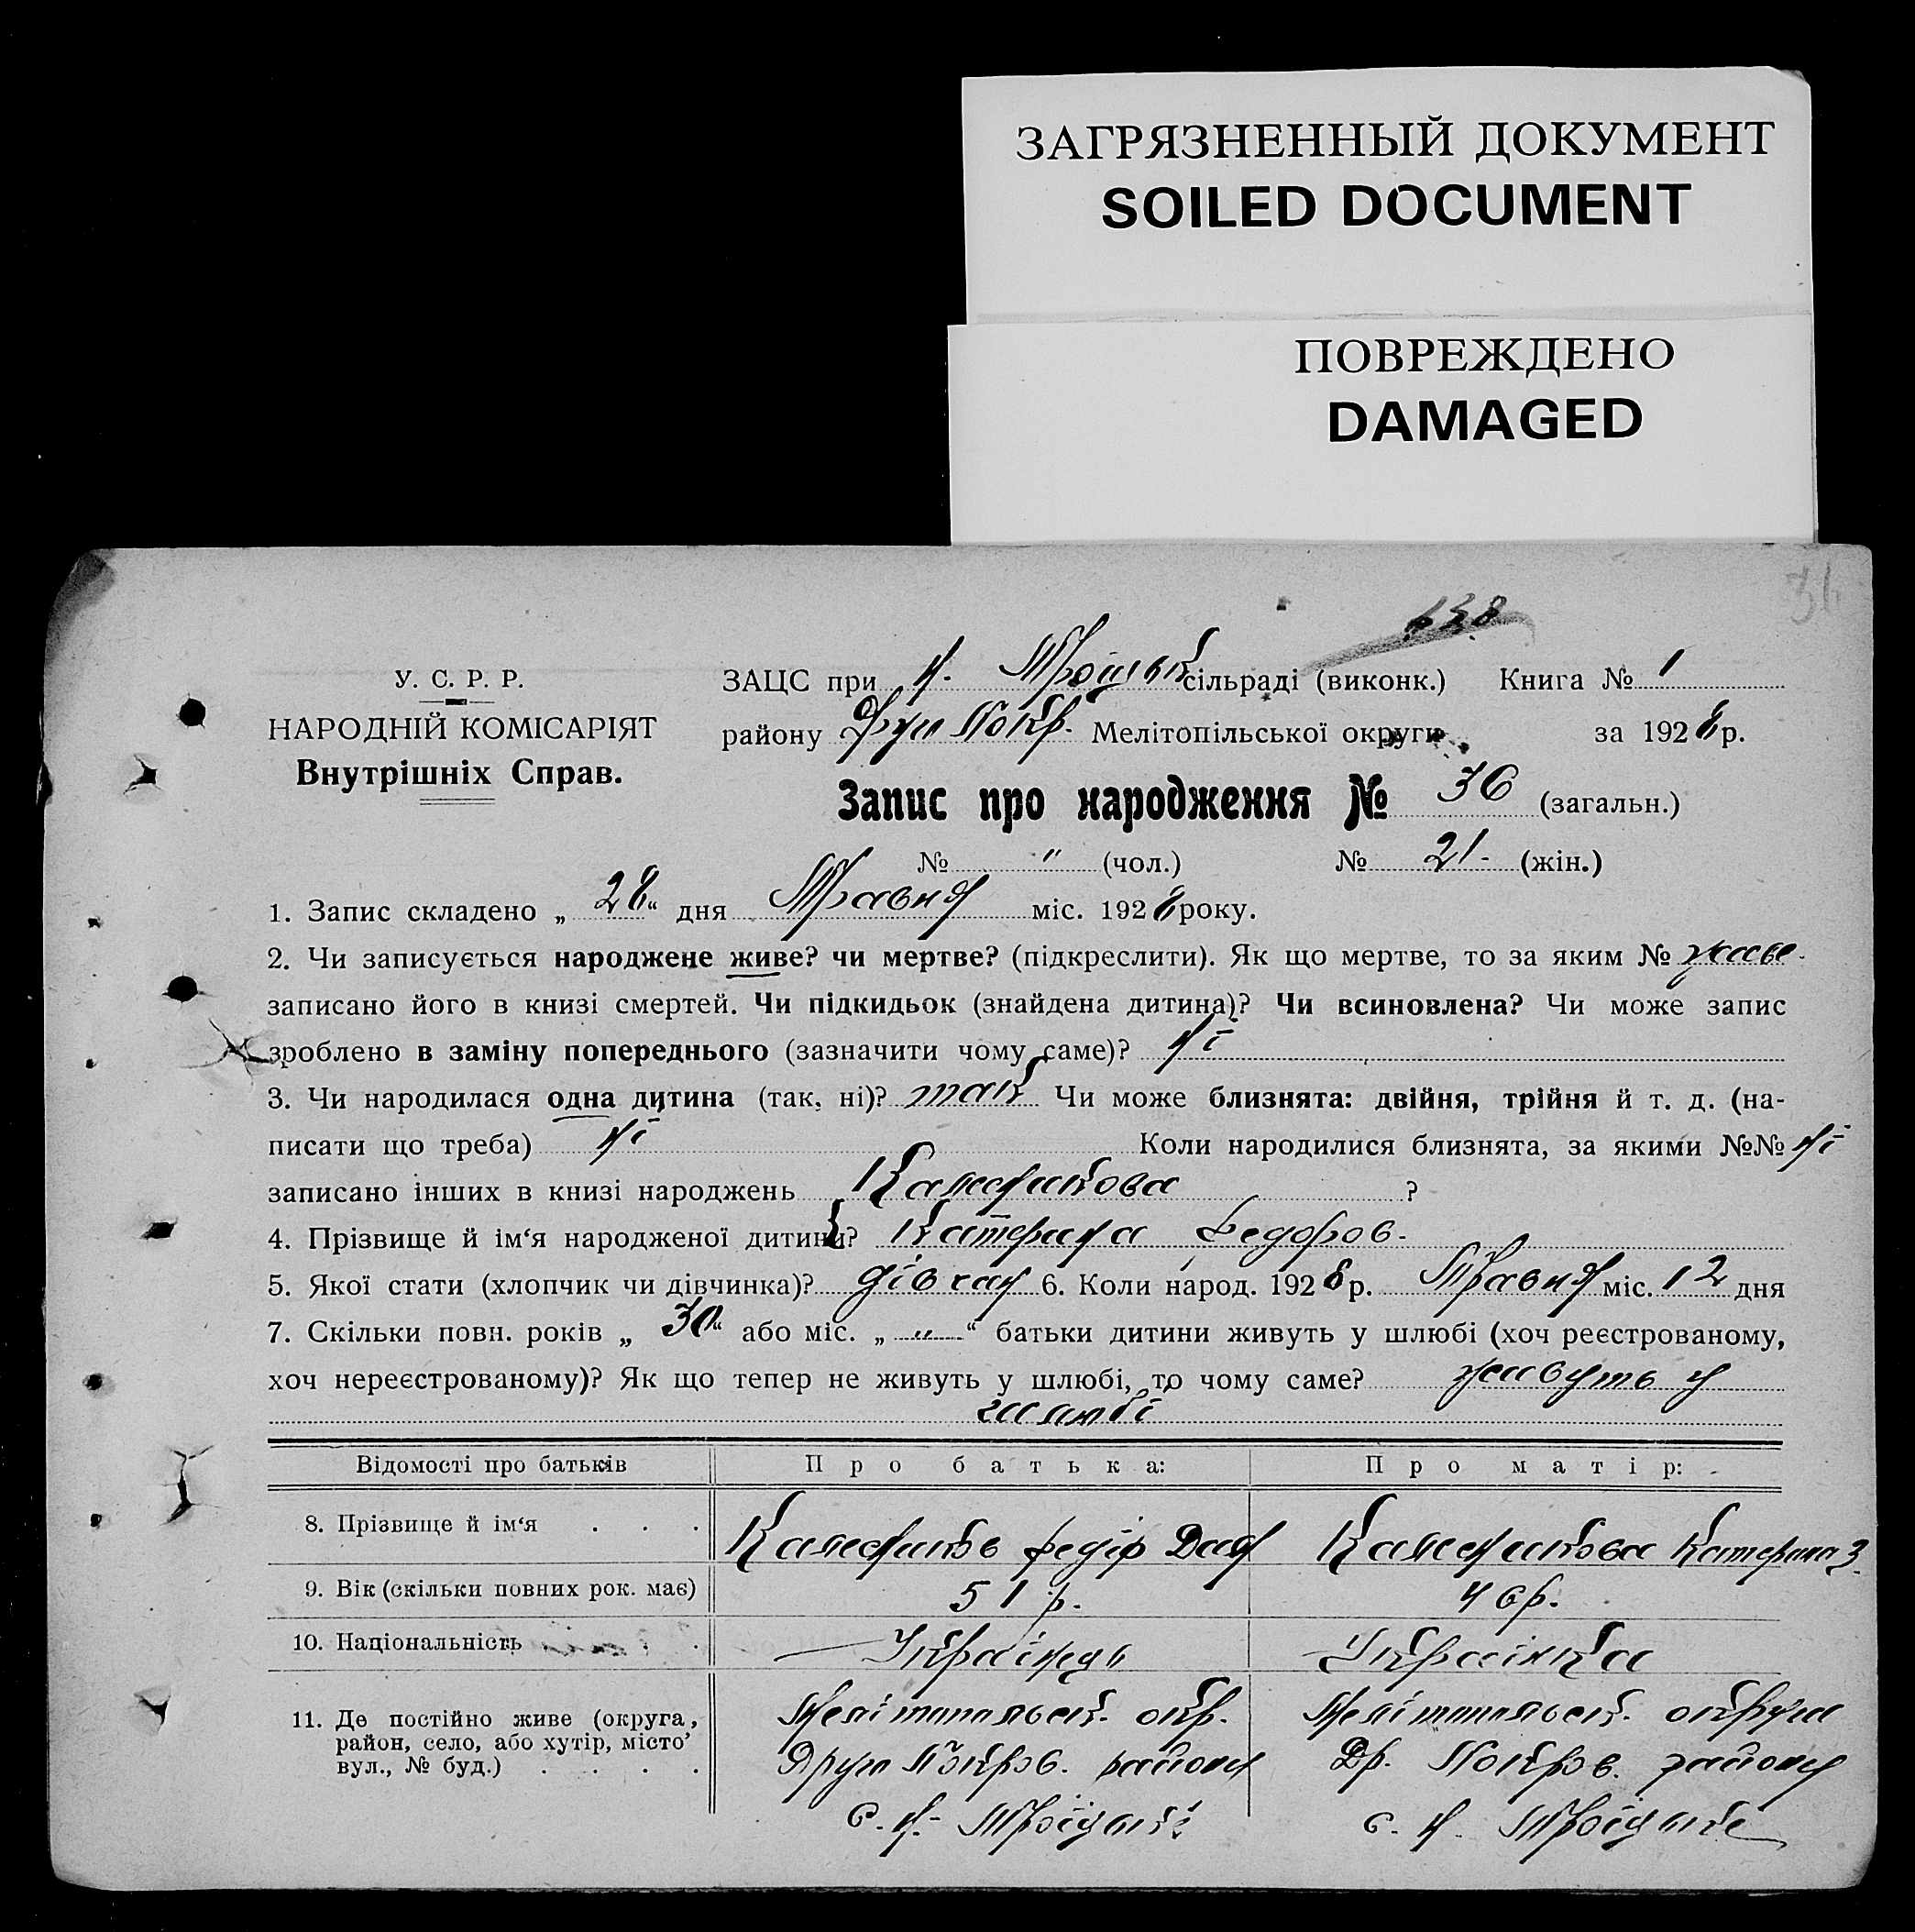 ЗАГРЯЗНЕННЫЙ ДОКУМЕНТ
SOILED DOCUMENT
ПОВРЕЖДЕНО
DAMAGED
36
638
У. С. Р. Р.
НАРОДНІЙ КОМІСАРІЯТ
Внутрішніх Справ.
ЗАЦС при Н. Троїцьк сільраді (виконк.) Книга № 1
району Друг Покр. Мелітопільської округи за 1928 р.
Запис про народження № 36 (загальн.)
№ " (чол.) № 21- (жін.)
1. Запис складено „ 28 “ дня Травня міс. 1928 року.
2. Чи записується народжене живе? чи мертве? (підкреслити). Як що мертве, то за яким № живе-
записано його в книзі смертей. Чи підкидьок (знайдена дитина)? Чи всиновлена? Чи може запис
зроблено в заміну попереднього (зазначити чому саме)? ні
3. Чи народилася одна дитина (так, ні)? так Чи може близнята: двійня, трійня й т. д. (на-
писати що треба) ні Коли народилися близнята, за якими №№ ні
записано інших в книзі народжень ?
4. Прізвище й ім‘я народженої дитини? Катерина Федоров.
5. Якої стати (хлопчик чи дівчинка)? дівчин 6. Коли народ. 1928 р. Травня міс. 12 дня
7. Скільки повн. років „ 30 “ або міс. „ " “ батьки дитини живуть у шлюбі (хоч реєстрованому,
хоч нереєстрованому)? Як що тепер не живуть у шлюбі, то чому саме? живуть у
шлюбі
Відомості про батьків Про батька: Про матір:
8. Прізвище й ім‘я . . . Федір Катерина З.
9. Вік (скільки повних рок. має) 51 р. 46 р.
10. Національність . Українець Українка
11. Де постійно живе (округа, район, село, або хутір, місто, вул., № буд.) . . . .
Мелітопальськ. окр. Мелітопальськ. округи
Друго Покров. району Др. Покров. району
с. Н.- Троїцьке с. Н. Троїцьке